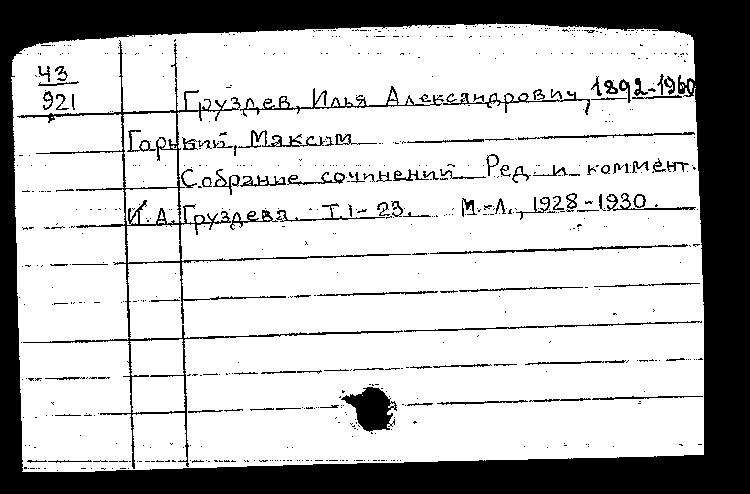 43
921
Груздев, Илья Александрович, 1892-1960
Горький, Максим
Собрание сочинений Ред. и коммент.
И.А. Груздева. Т.1-23. М.-Л., 1928-1930.